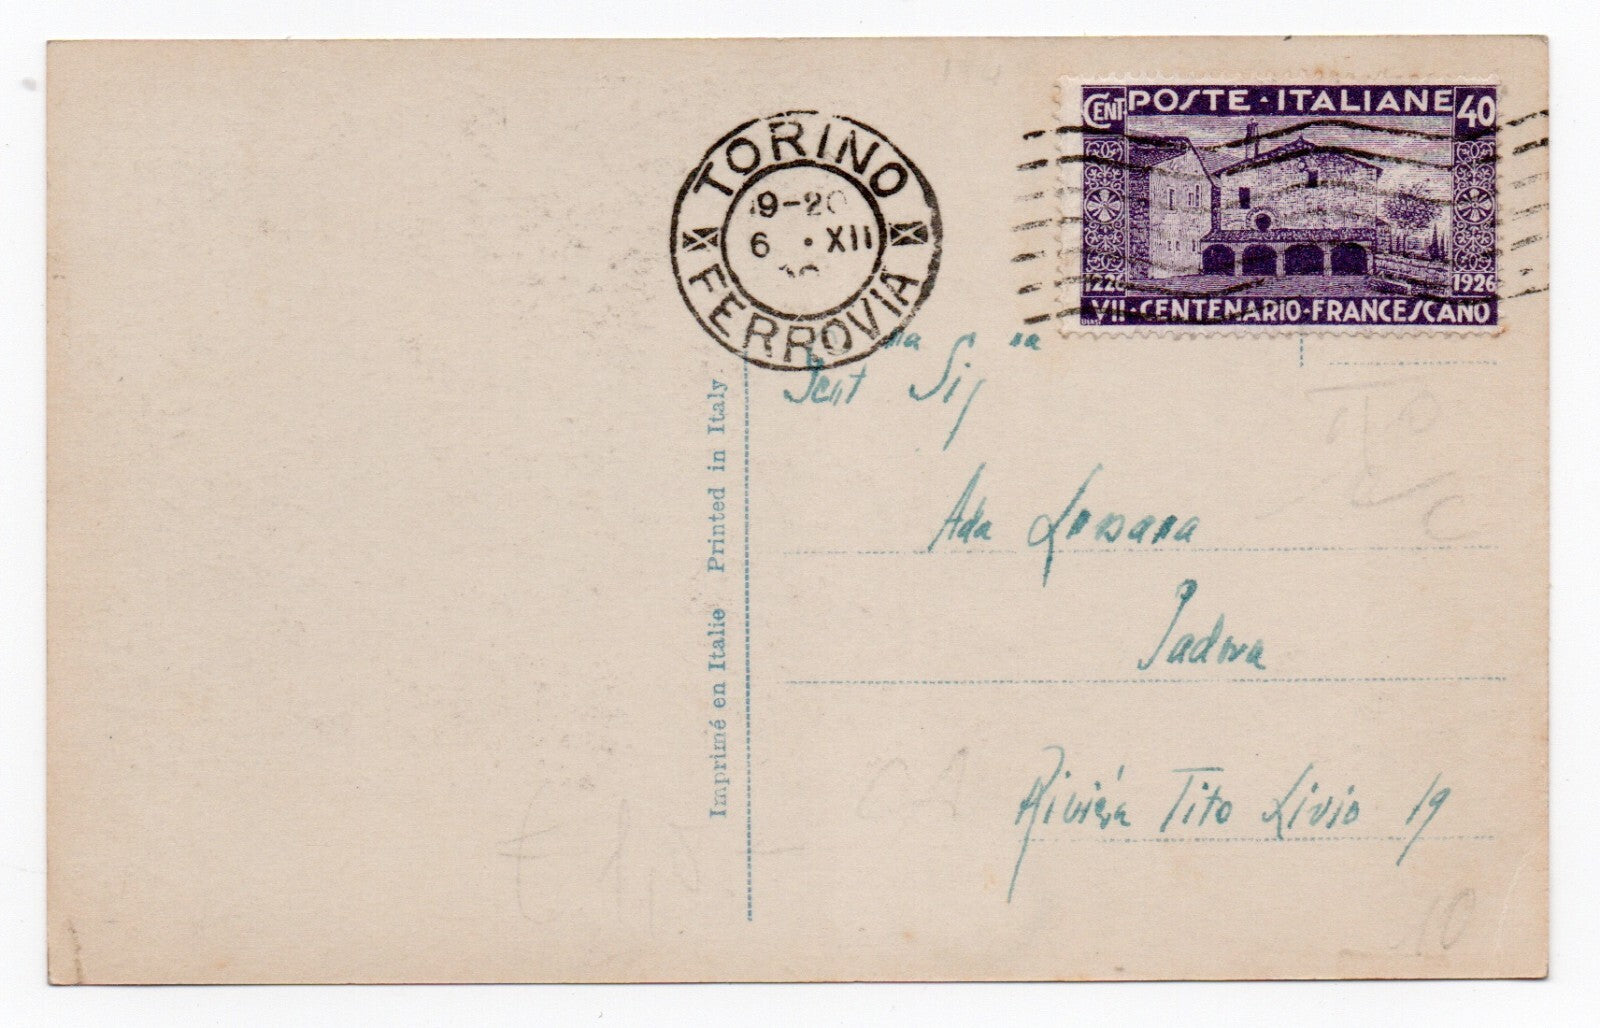 CENT POSTE·ITALIANE 40
1226 1926
VII·CENTENARIO·FRANCESCANO
TORINO
19-20
6 · XII
FERROVIA
Gent ma Sig na
Ada
Padova
Riviera Tito Livio 19
Imprimé en Italie Printed in Italy.
CA
10